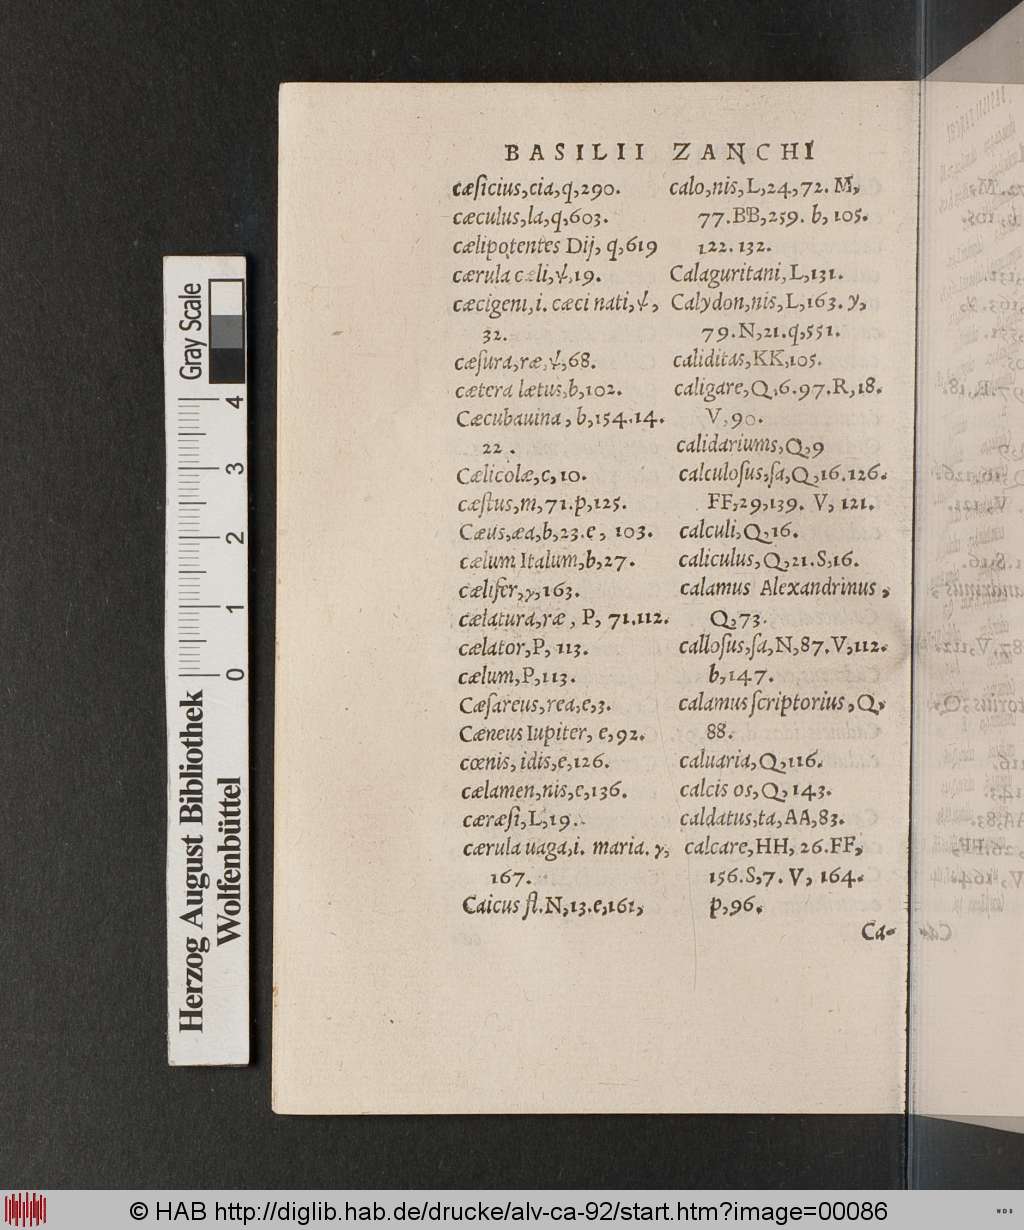 BASILII ZANCHI
cæſicius,cia,q,290.
cæculus,la,q,603.
cælipotentes Dij, q,619
cærula cæli,ψ,19.
cæcigeni,i. cæci nati,ψ,
32.
cæſura,ræ,ψ,68.
cætera lætus,b,102.
Cæcubauina, b,154.14.
22.
Cælicolæ,c,10.
cæſtus,m,71.p,125.
Cæus,æa,b,23.e, 103.
cælum Italum,b,27.
cælifer,γ,163.
cælatura,ræ, P, 71.112.
cælator,P, 113.
cælum,P,113.
Cæſareus,rea,e,3.
Cæneus Iupiter, e,92.
cœnis, idis,e,126.
cælamen,nis,e,136.
cæræſi,L,19.
cærula uaga,i. maria. γ,
167.
Caicus fl.N,13.e,161,
calo,nis,L,24,72. M,
77.BB,259. b, 105.
122.132.
Calaguritani,L,131.
Calydon,nis,L,163. y,
79.N,21.q,551.
caliditas,KK,105.
caligare,Q,6.97.R,18.
V,90.
calidariums,Q,9
calculoſus,ſa,Q,16.126.
FF,29,139. V, 121.
calculi,Q,16.
caliculus,Q,21.S,16.
calamus Alexandrinus,
Q,73.
calloſus,ſa,N,87.V,112.
b,147.
calamus ſcriptorius,Q,
88.
caluaria,Q,116.
calcis os,Q,143.
caldatus,ta,AA,83.
calcare,HH, 26.FF,
156.S,7. V, 164.
p,96.
Ca-
Gray Scale
4
3
2
1
0
Herzog August Bibliothek
Wolfenbüttel
© HAB http://diglib.hab.de/drucke/alv-ca-92/start.htm?image=00086
WDB